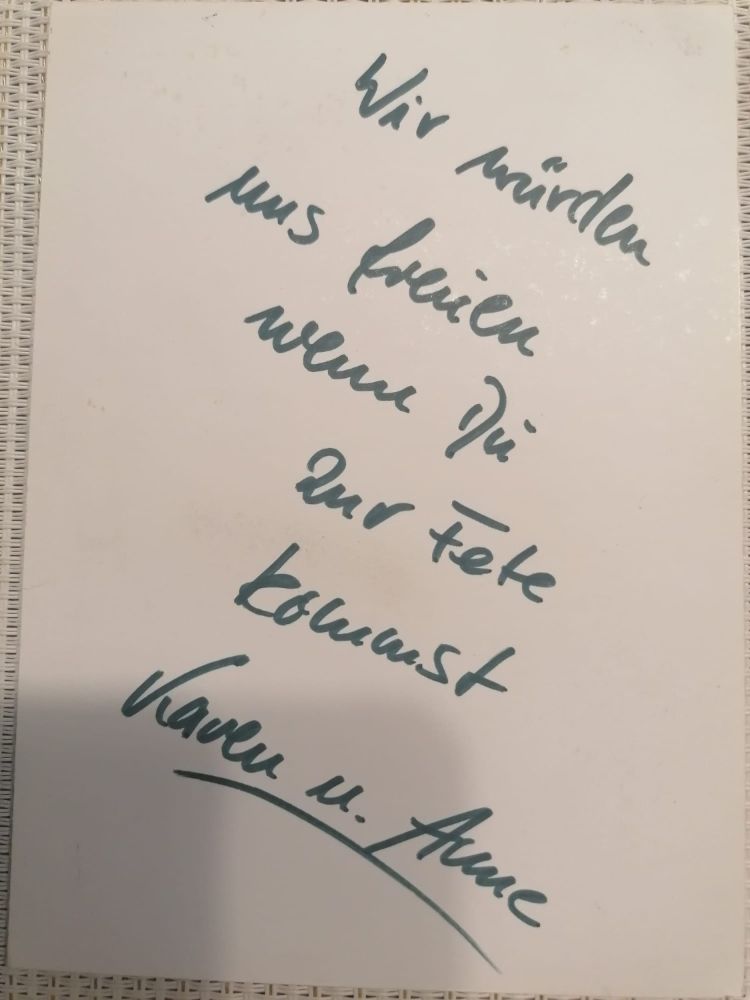 Wir würden
uns freuen
wenn Du
zur Fete
kommst
Karen u. Anne